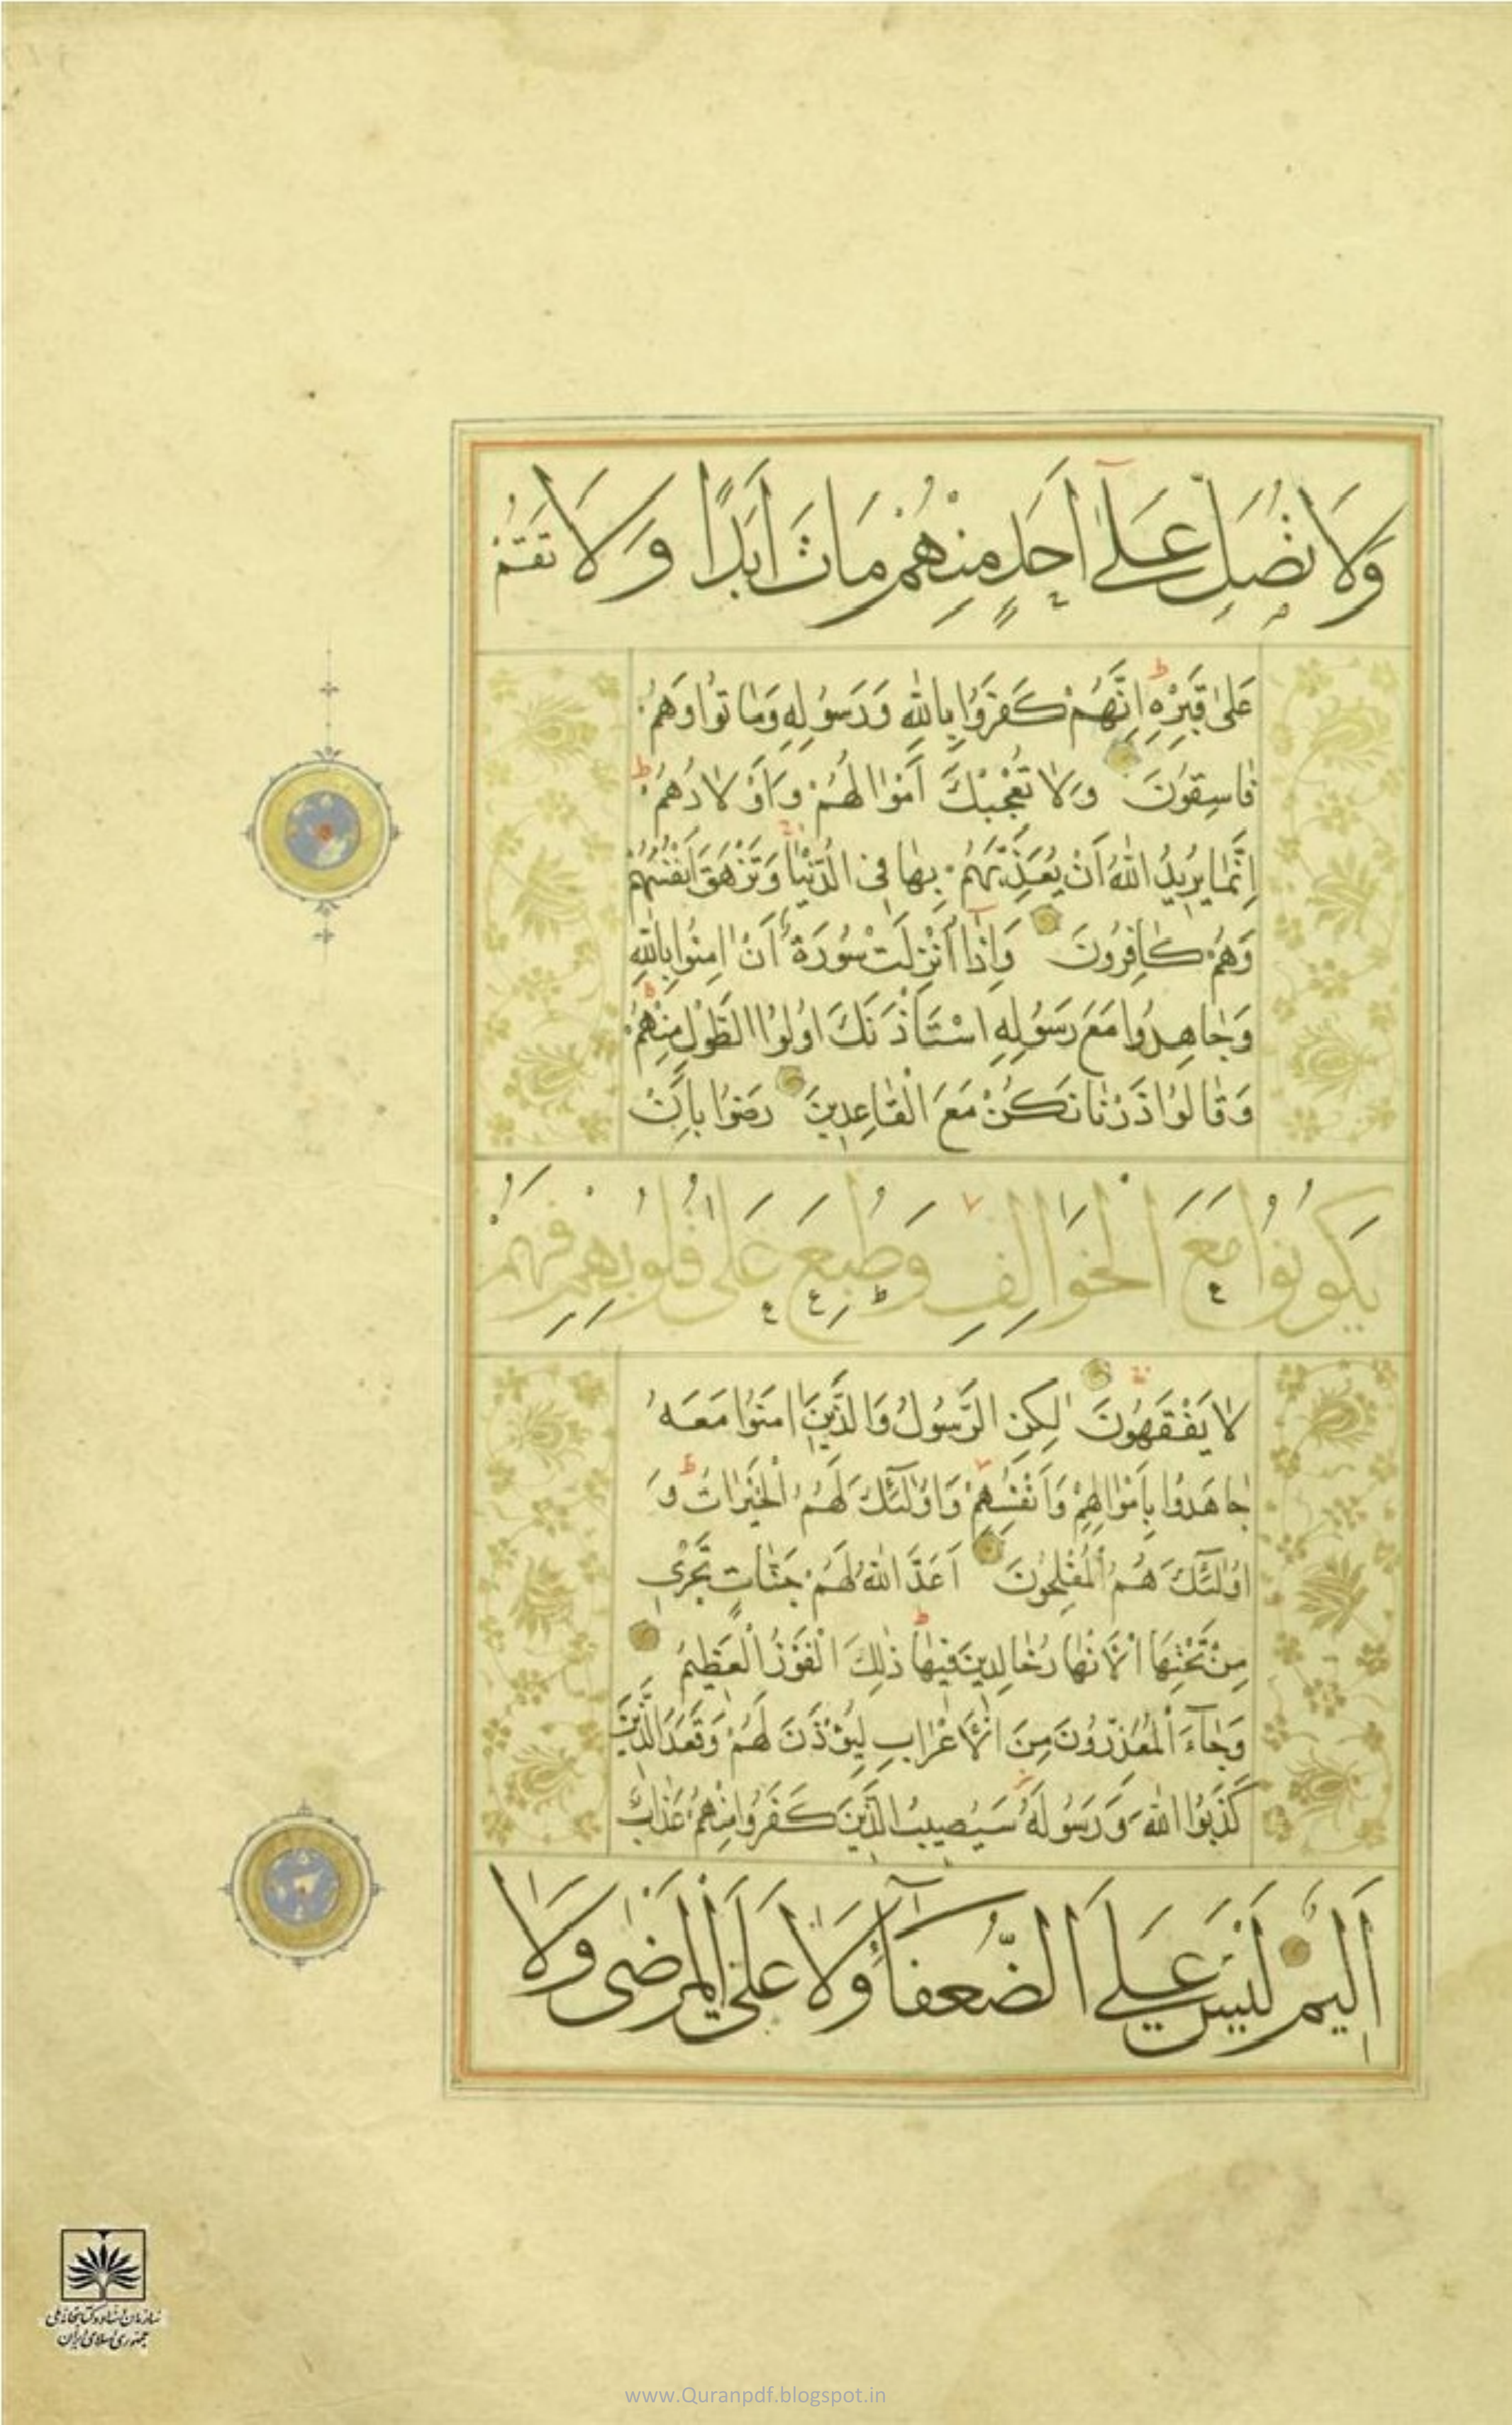 وَلَا تُصَلِّ عَلَىٰٓ اَحَدٍ مِنْهُمْ مَاتَ اَبَدًا وَلَا تَقُمْ
عَلٰى قَبْرِهِ ط اِنَّهُمْ كَفَرُوا بِاللّٰهِ وَرَسُولِهِ وَمَاتُوا وَهُمْ
فَاسِقُونَ وَلَا تُعْجِبْكَ اَمْوٰالُهُمْ وَاَوْلَادُهُمْ ط
اِنَّمٰا يُرِيدُ اللّٰهُ اَنْ يُعَذِّبَهُمْ بِهٰا فِى الدُّنْيٰا وَتَزْهَقَ اَنْفُسُهُمْ
وَهُمْ كٰافِرُونَ وَاِذٰٓا اُنْزِلَتْ سُورَةٌ اَنْ اٰمِنُوا بِاللّٰهِ
وَجٰاهِدُوا مَعَ رَسُولِهِ اسْتَأْذَنَكَ اُولُوا الطَّوْلِ مِنْهُمْ ط
وَقٰالُوا ذَرْنٰا نَكُنْ مَعَ الْقٰاعِدِينَ رَضُوا بِاَنْ
يَكُونُوا مَعَ الْخَوٰالِفِ وَطُبِعَ عَلٰى قُلُوبِهِمْ فَهُمْ
لَا يَفْقَهُونَ لٰكِنِ الرَّسُولُ وَالَّذِينَ اٰمَنُوا مَعَهُ
جٰاهَدُوا بِاَمْوٰالِهِمْ وَاَنْفُسِهِمْ وَاُولٰٓئِكَ لَهُمُ الْخَيْرٰاتُ ط وَ
اُولٰٓئِكَ هُمُ الْمُفْلِحُونَ اَعَدَّ اللّٰهُ لَهُمْ جَنّٰاتٍ تَجْرِى
مِنْ تَحْتِهَا الْاَنْهٰارُ خٰالِدِينَ فِيهٰا ط ذٰلِكَ الْفَوْزُ الْعَظِيمُ
وَجٰٓاءَ الْمُعَذِّرُونَ مِنَ الْاَعْرٰابِ لِيُؤْذَنَ لَهُمْ وَقَعَدَ الَّذِينَ
كَذَبُوا اللّٰهَ وَرَسُولَهُ سَيُصِيبُ الَّذِينَ كَفَرُوا مِنْهُمْ عَذٰابٌ
اَلِيمٌ لَيْسَ عَلَى الضُّعَفٰٓاءِ وَلَا عَلَى الْمَرْضٰى وَلَا
سازمان اسناد و کتابخانه ملی
جمهوری اسلامی ایران
www.Quranpdf.blogspot.in